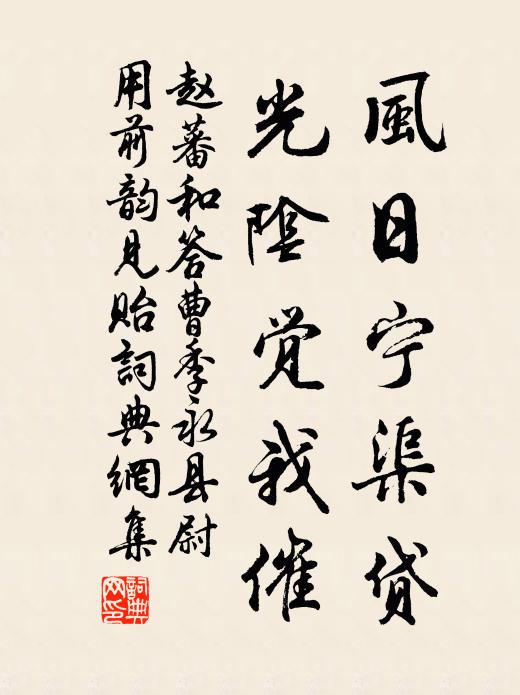 風日宁渠贷
光陰觉我催
赵蕃和答曹季永县尉
用前韵见贻詞典網集
詞典網印